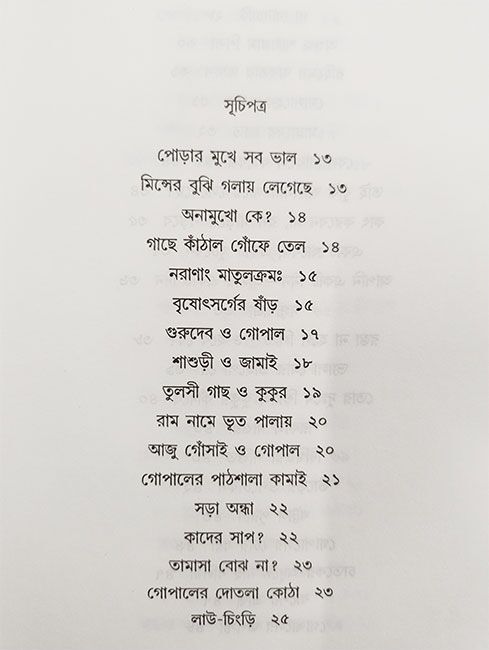 সূচিপত্র
পোড়ার মুখে সব ভাল ১৩
মিন্সের বুঝি গলায় লেগেছে ১৩
অনামুখো কে? ১৪
গাছে কাঁঠাল গোঁফে তেল ১৪
নরাণাং মাতুলক্রমঃ ১৫
বৃষোৎসর্গের ষাঁড় ১৫
গুরুদেব ও গোপাল ১৭
শাশুড়ী ও জামাই ১৮
তুলসী গাছ ও কুকুর ১৯
রাম নামে ভূত পালায় ২০
আজু গোঁসাই ও গোপাল ২০
গোপালের পাঠশালা কামাই ২১
সড়া অন্ধা ২২
কাদের সাপ? ২২
তামাসা বোঝ না? ২৩
গোপালের দোতলা কোঠা ২৩
লাউ-চিংড়ি ২৫